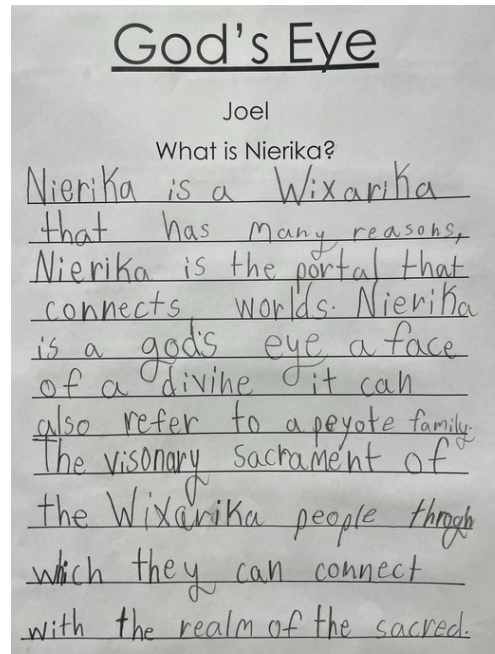 God's Eye
Joel
What is Nierika?
Nierika is a Wixarika
that has many reasons,
Nierika is the portal that
connects worlds. Nierika
is a god's eye a face
of a divine it can
also refer to a peyote family.
The visonary Sacrament of
the Wixarika people throgh
which they can connect
with the realm of the sacred.